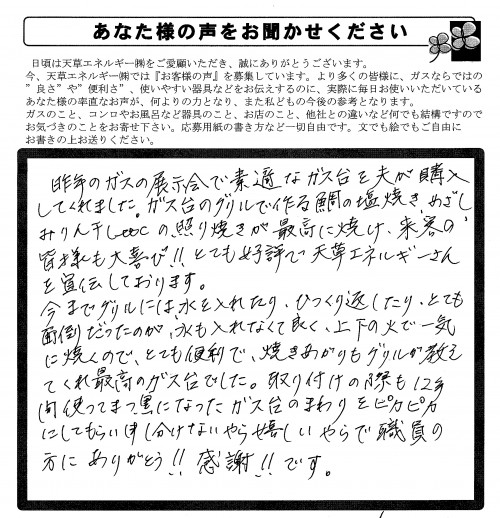 あなた様の声をお聞かせください
日頃は天草エネルギー㈱をご愛顧いただき、誠にありがとうございます。
今、天草エネルギー㈱では『お客様の声』を募集しています。より多くの皆様に、ガスならではの
"良さ"や"便利さ"、使いやすい器具などをお伝えするのに、実際に毎日お使いいただいている
あなた様の率直なお声が、何よりの力となり、また私どもの今後の参考となります。
ガスのこと、コンロやお風呂など器具のこと、お店のこと、他社との違いなど何でも結構ですので
お気づきのことをお寄せ下さい。応募用紙の書き方など一切自由です。文でも絵でもご自由に
お書きの上お送りください。
昨年のガスの展示会で素適なガス台を夫が購入
してくれました。ガス台のグリルで作る鯛の塩焼き めざし
みりん干しetcの照り焼きが最高に焼け、来客の
皆様も大喜び!!とても好評で天草エネルギーさん
を宣伝しております。
今までグリルには水を入れたり、ひっくり返したり、とても
面倒だったのが、水も入れなくて良く、上下の火で一気
に焼くので、とても便利で、焼きあがりもグリルが教え
てくれ最高のガス台でした。取り付けの際も12年
間使ってまっ黒になったガス台のまわりをピカピカ
にしてもらい申し分けないやら嬉しいやらで職員の
方にありがとう!!感謝!!です。